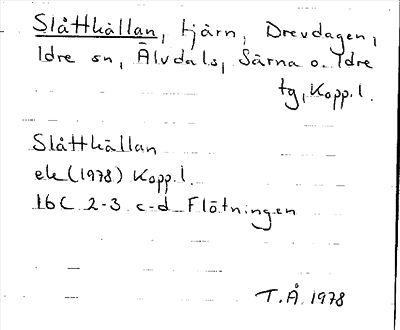 Slåtthållan, tjärn, Drevdagen,
Idre sn, Älvdals, Särna o. Idre
tg, Kopp.l.
Slåtthållan
ek (1978) Kopp.l.
16C 2-3 c-d Flötningen
T.Å. 1978